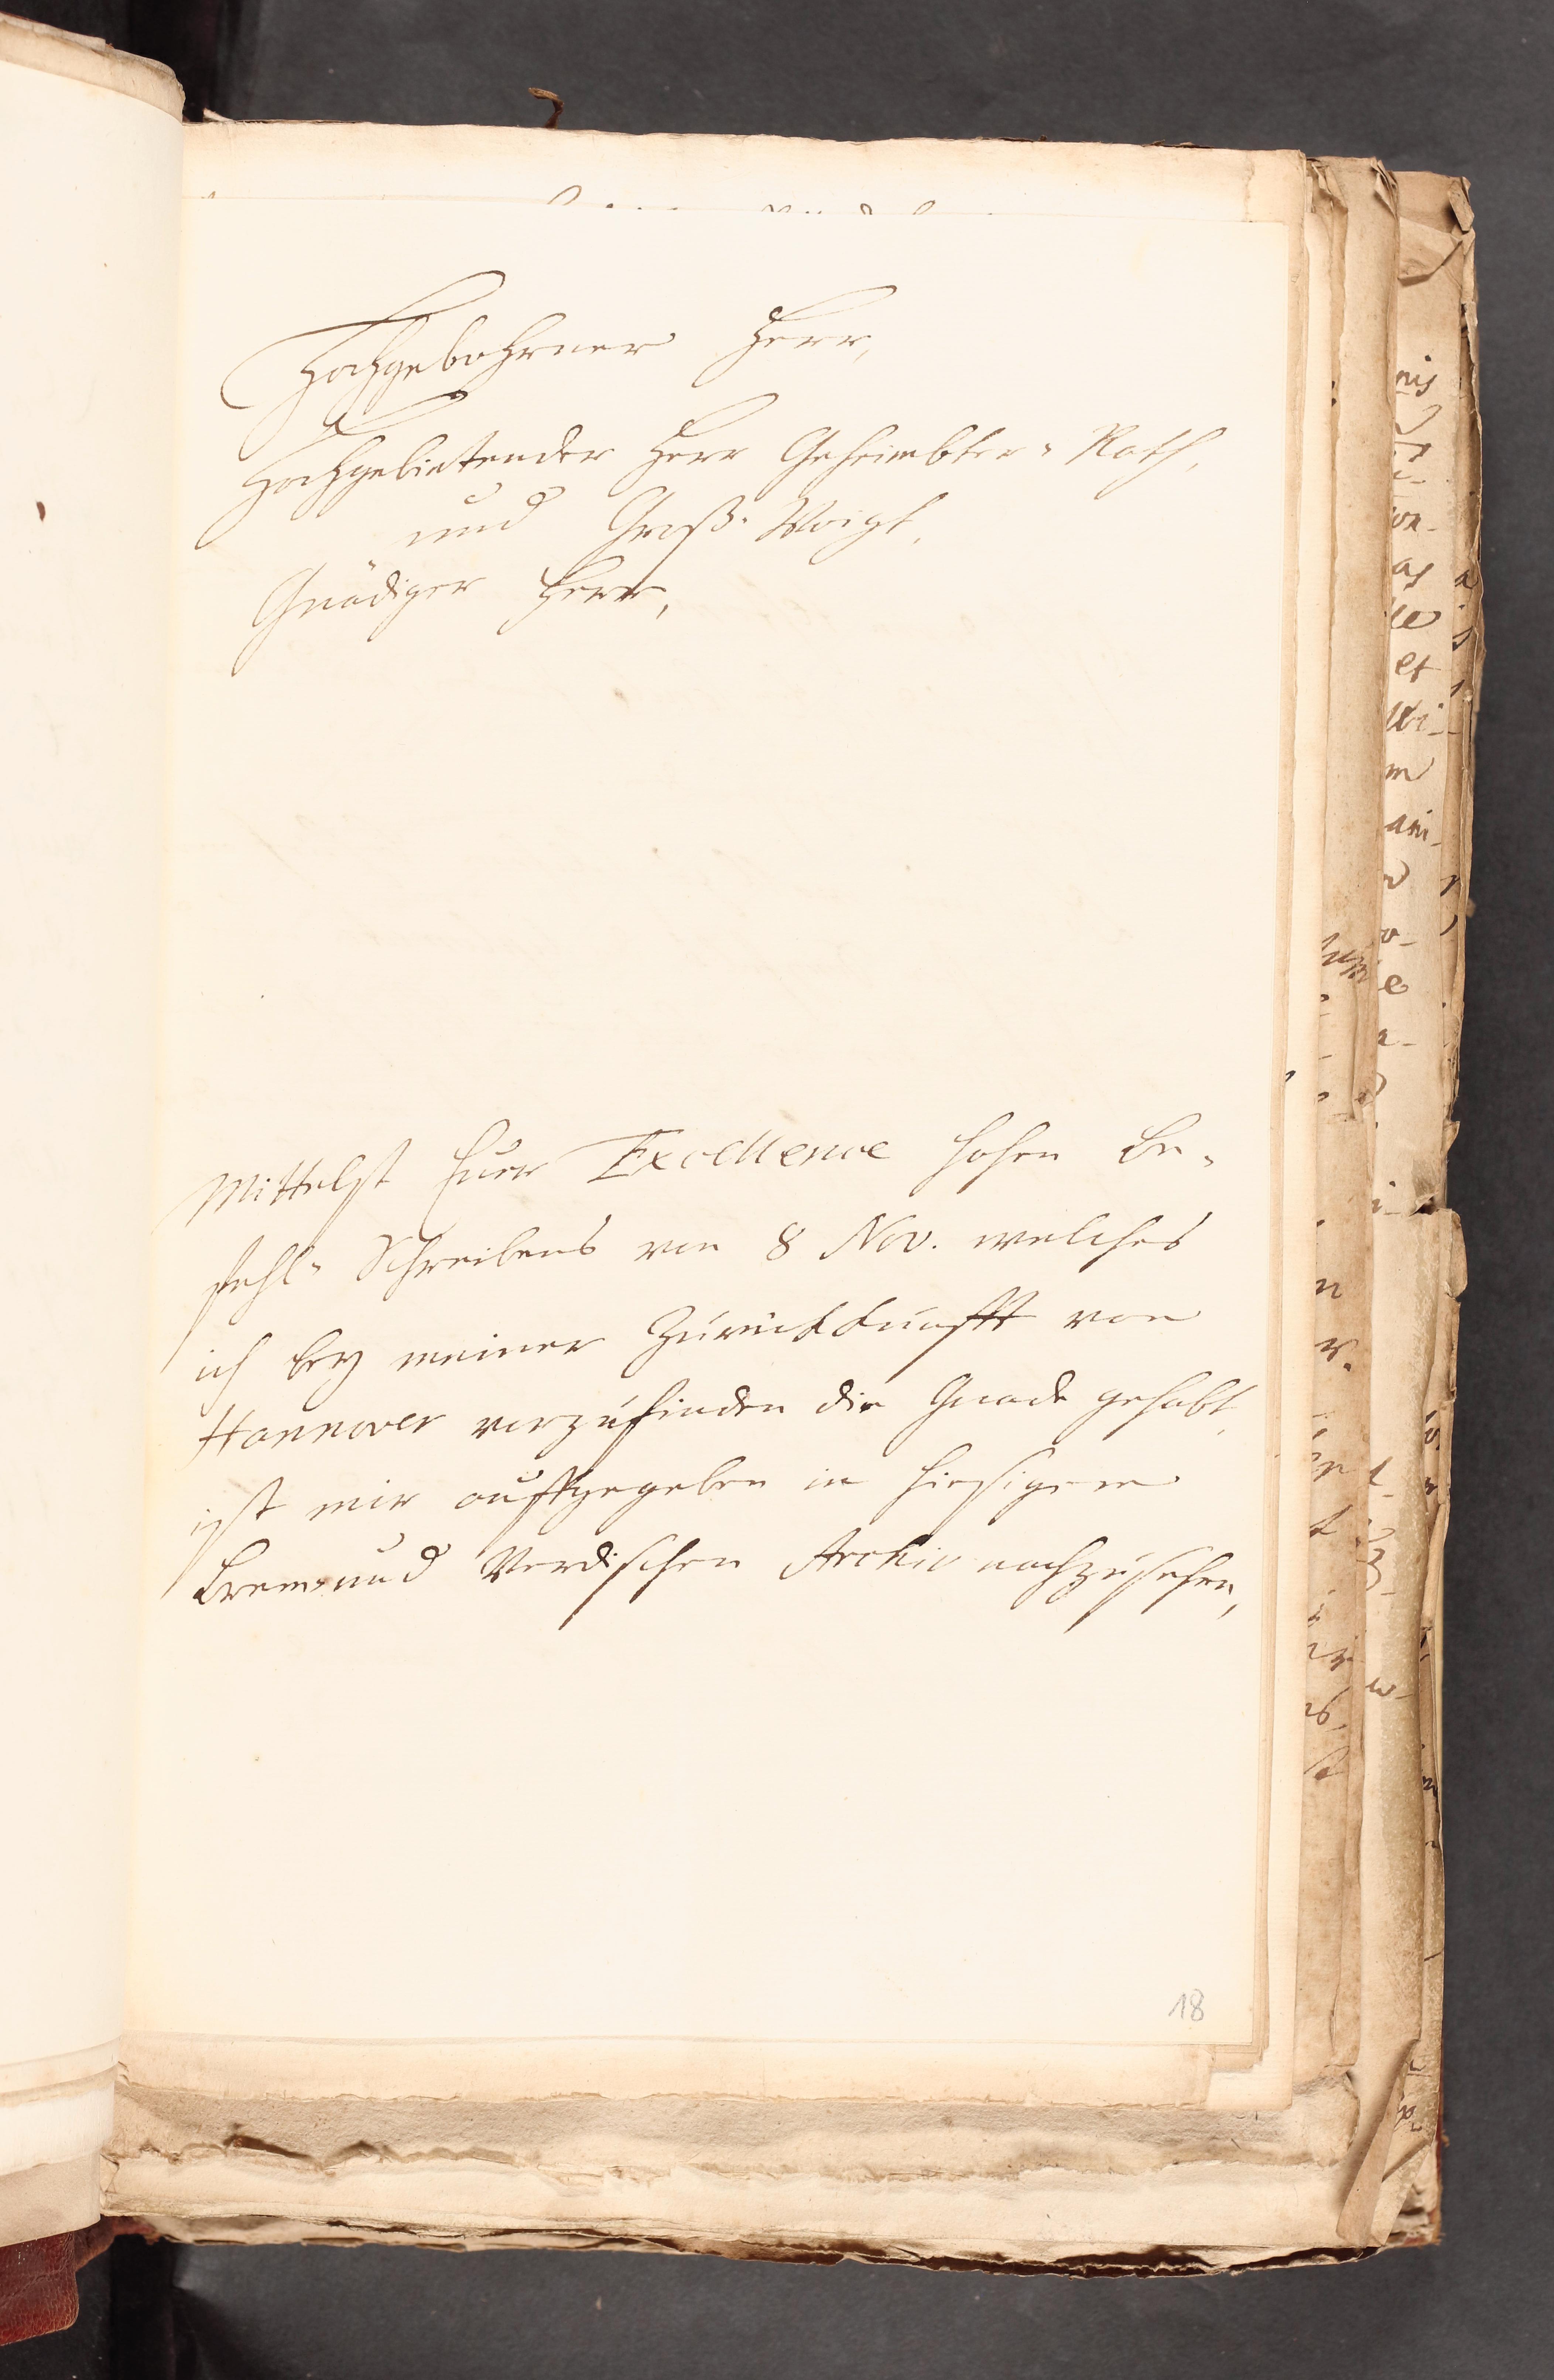 Hochgebohrner Herr,
Hochgebietender Herr Geheimbter-Rath,
und Groß-Voigt,
Gnädiger Herr,
Mittelst Euer Excellence hohen Be-
fehl-Schreibens von 8 Nov. welches
ich bey meiner Zurückkunfft von
Hannover vorzufinden die Gnade gehabt,
ist mir auffgegeben in hiesigem
Brem-und Verdischen Archiv nachzusehen,
18